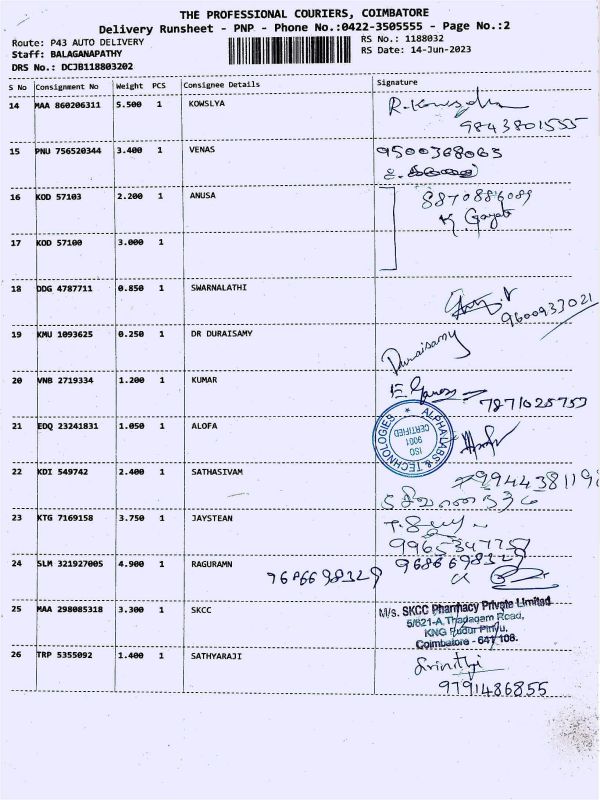 THE PROFESSIONAL COURIERS, COIMBATORE
Delivery Runsheet - PNP - Phone No.:0422-3505555 - Page No.:2
Route: P43 AUTO DELIVERY
RS No.: 1188032
Staff: BALAGANAPATHY
RS Date: 14-Jun-2023
DRS No.: DCJB118803202
S No Consignment No Weight PCS Consignee Details Signature
14 MAA 860206311 5.500 1 KOWSLYA
9843801555
15 PNU 756520344 3.400 1 VENAS 9500368063
16 KOD 57103 2.200 1 ANUSA 8870886089
17 KOD 57100 3.000 1
18 DDG 4787711 0.850 1 SWARNALATHI
9600933021
19 KMU 1093625 0.250 1 DR DURAISAMY
Duraisamy
20 VNB 2719334 1.200 1 KUMAR
7871028753
21 EDQ 23241831 1.050 1 ALOFA
ALPHALABS & TECHNOLOGIES
ISO
9001
CERTIFIED
22 KDI 549742 2.400 1 SATHASIVAM
23 KTG 7169158 3.750 1 JAYSTEAN
9965347757
24 SLM 321927005 4.900 1 RAGURAMN 9686698329
9686698329
25 MAA 298085318 3.300 1 SKCC
M/s. SKCC Pharmacy Private Limited
5/621-A, Thadagam Road,
KNG Pudur Pirivu,
Coimbatore - 641 108.
26 TRP 5355092 1.400 1 SATHYARAJI
Srinithi
9791486855